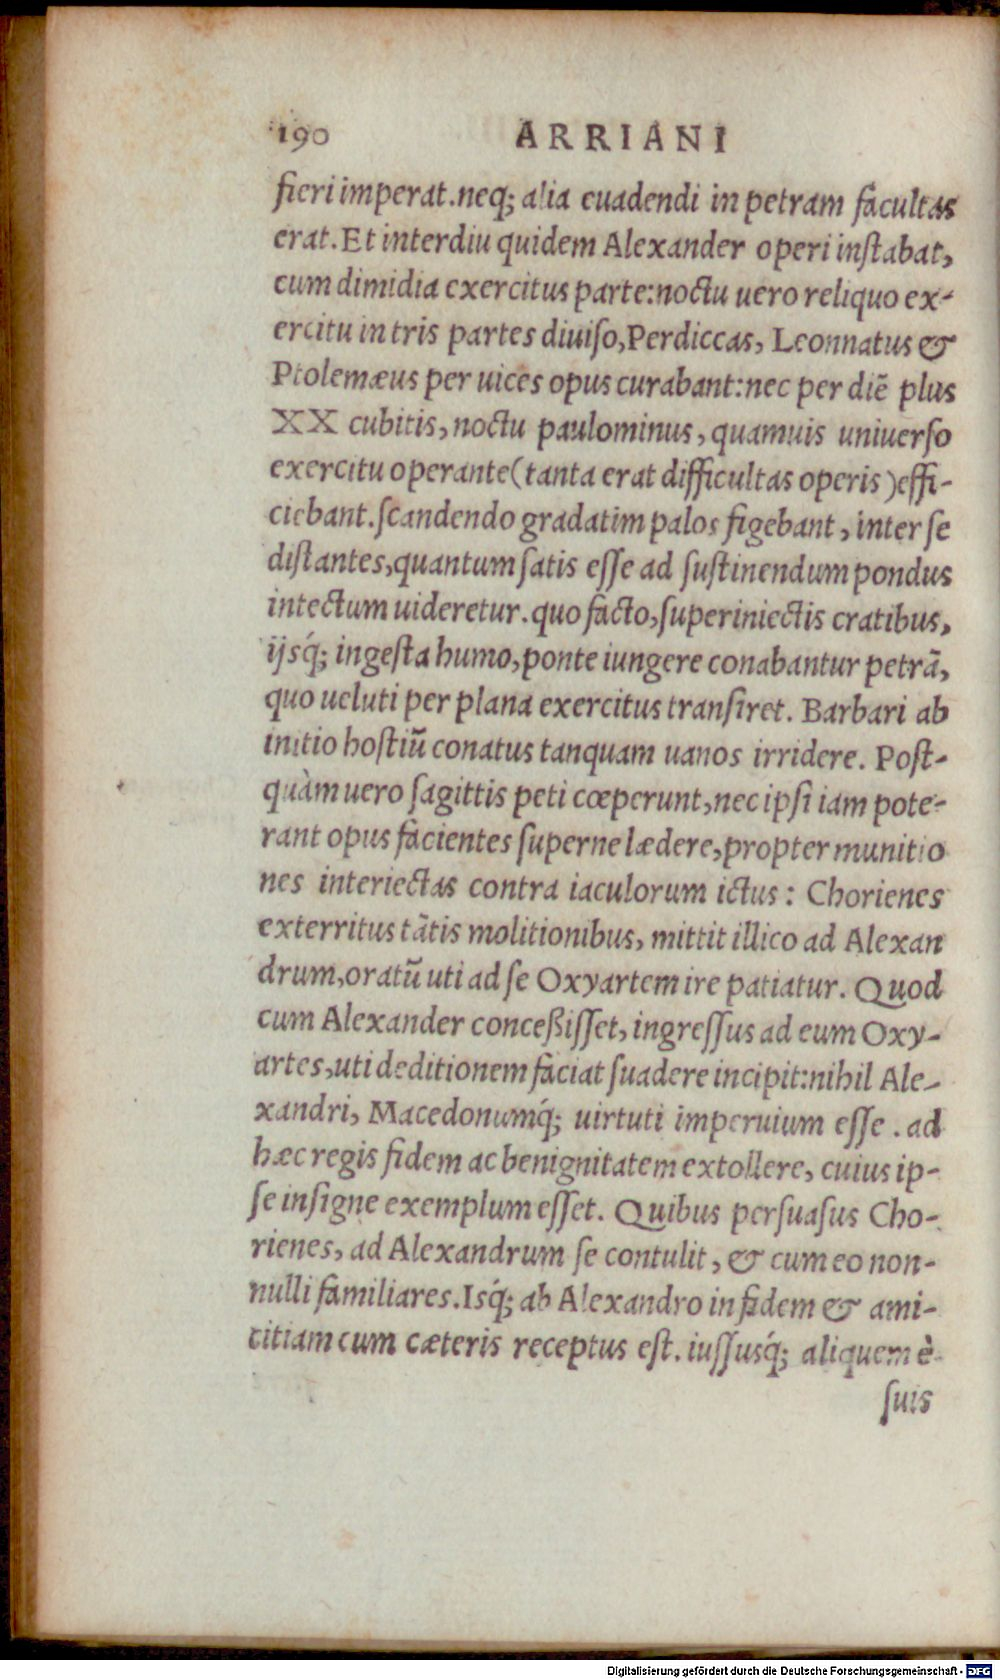 190 ARRIANI
fieri imperat. neq; alia euadendi in petram facultas
erat. Et interdiu quidem Alexander operi inſtabat,
cum dimidia exercitus parte: noctu uero reliquo ex-
ercitu in tris partes diuiſo, Perdiccas, Leonnatus &
Ptolemæus per uices opus curabant: nec per diē plus
XX cubitis, noctu paulominus, quamuis uniuerſo
exercitu operante (tanta erat difficultas operis) effi-
ciebant. ſcandendo gradatim palos figebant, inter ſe
diſtantes, quantum ſatis eſſe ad ſuſtinendum pondus
intectum uideretur. quo facto, ſuperiniectis cratibus,
ijsq́; ingeſta humo, ponte iungere conabantur petrā,
quo ueluti per plana exercitus tranſiret. Barbari ab
initio hoſtiū conatus tanquam uanos irridere. Poſt-
quàm uero ſagittis peti cœperunt, nec ipſi iam pote-
rant opus facientes ſuperne lædere, propter munitio
nes interiectas contra iaculorum ictus: Chorienes
exterritus tātis molitionibus, mittit illico ad Alexan
drum, oratū uti ad ſe Oxyartem ire patiatur. Quod
cum Alexander conceßiſſet, ingreſſus ad eum Oxy-
artes, uti deditionem faciat ſuadere incipit: nihil Ale-
xandri, Macedonumq́; uirtuti imperuium eſſe. ad
hæc regis fidem ac benignitatem extollere, cuius ip-
ſe inſigne exemplum eſſet. Quibus perſuaſus Cho-
rienes, ad Alexandrum ſe contulit, & cum eo non-
nulli familiares. Isq́; ab Alexandro in fidem & ami-
citiam cum cæteris receptus eſt. iuſſusq́; aliquem è
ſuis
Digitalisierung gefördert durch die Deutsche Forschungsgemeinschaft - DFG